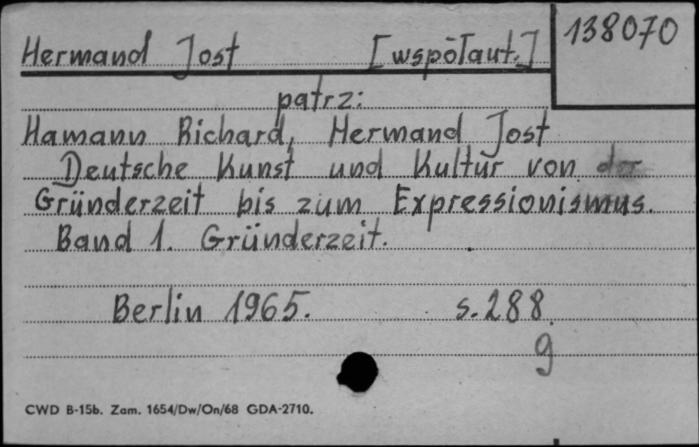 138070
Hermand Jost [współaut.]
patrz:
Hamann Richard, Hermand Jost
Deutsche Kunst und Kultur von der
Gründerzeit bis zum Expressionismus.
Band 1. Gründerzeit.
Berlin 1965. s.288.
9
CWD B-15b. Zam. 1654/Dw/On/68 GDA-2710.